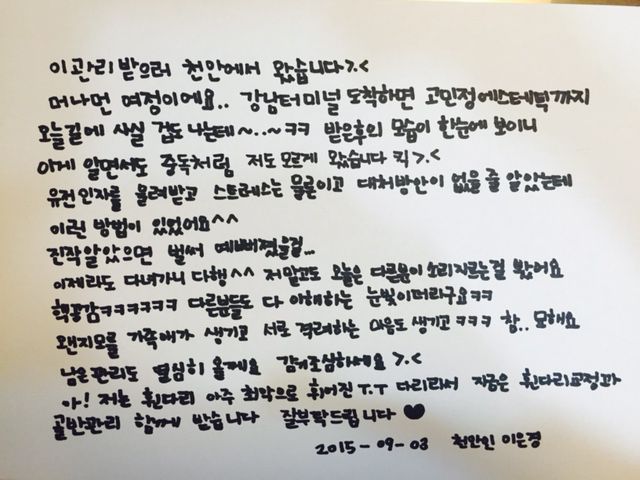 이 관리 받으러 천안에서 왔습니다>.<
머나먼 여정이에요.. 강남터미널 도착하면 고민정에스테틱까지
오늘길에 사실 겁도 나는데~..~ㅋㅋ 받은후의 모습이 한눈에 보이니
아게 알면서도 중독처럼 저도모르게 왔습니다 킥>.<
유전인자를 물려받고 스트레스는 물론이고 대처방안이 없을줄 알았는데
이런 방법이 있었어요^^
진작알았으면 벌써 예뻐졌을걸...
이제라도 다녀가니 다행^^ 저말고도 오늘은 다른분이 소리지르는걸 봤어요
핵공감ㅋㅋㅋㅋㅋㅋ 다른분들도 다 이해하는 눈빛이더라구요ㅋㅋ
왠지모를 가족애가 생기고 서로 격려하는 마음도 생기고 ㅋㅋㅋ 참.. 묘해요
남은관리도 열심히 올께요 감기조심하세요 >.<
아! 저는 휜다리 아주 최악으로 휘어진 T.T 다리라서 지금은 휜다리교정과
골반관리 함께 받습니다 잘부탁드립니다 ♥
2015-09-03 천안인 이은경